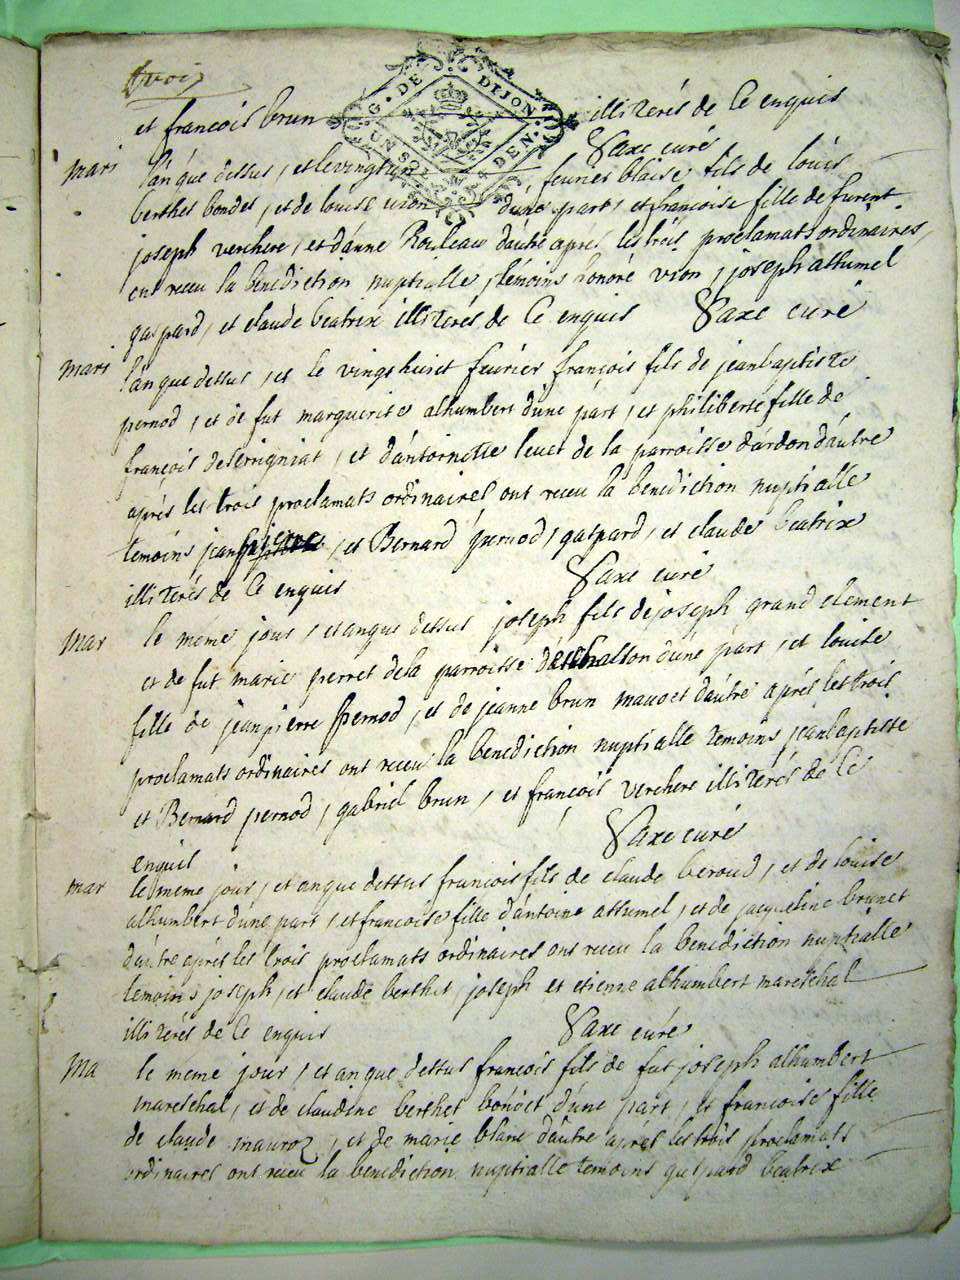 trois
G. DE DIJON
UN SOL 4 DEN.
et francois brun illiterés de ce enquis
Saxe curé
mari l'an que dessus, et le vingt un fevrier blaise fils de loüis
berthet bondet, et de louise vion d'une part, et francoise fille de
joseph verchere, et d'anne Rouleau d'autre après les trois proclamats ordinaires,
ont receu la benediction nuptialle, temoins honoré vion, joseph allumel
gaspard, et claude beatrix illiterés de ce enquis Saxe curé
mari l'an que dessus, et le vingt huict fevrier françois fils de jean baptiste
pernod, et de fut marguerite alhumbert d'une part, et philiberte fille de
françois deserrigniat, et d'antoinette levet de la parroisse d'ardon d'autre
après les trois proclamats ordinaires ont receu la benediction nuptialle
temoins jean , et Bernard pernod, gaspard, et claude beatrix
illiterés de ce enquis Saxe curé
mar le meme jour, et an que dessus joseph fils de joseph grand clement
et de fut marie perret de la parroisse d'eschallon d'une part, et louise
fille de jean pierre pernod, et de jeanne brun d'autre après les trois
proclamats ordinaires ont receu la benediction nuptialle temoins jean baptiste
et Bernard pernod, gabriel brun, et françois verchere illiterés de ce
enquis Saxe curé
mar le meme jour, et an que dessus francois fils de claude beroud, et de louise
alhumbert d'une part, et francoise fille d'antoine allumel, et de jacqueline brunet
d'autre après les trois proclamats ordinaires ont receu la benediction nuptialle
temoins joseph, et claude berthet, joseph et etienne alhumbert mareschal
illiterés de ce enquis Saxe curé
Ma le meme jour, et an que dessus françois fils de fut joseph alhumbert
mareschal, et de claudine berthet bondet d'une part, et francoise fille
de claude mauroz, et de marie blanc d'autre après les trois proclamats
ordinaires ont receu la benediction nuptialle temoins gaspard beatrix